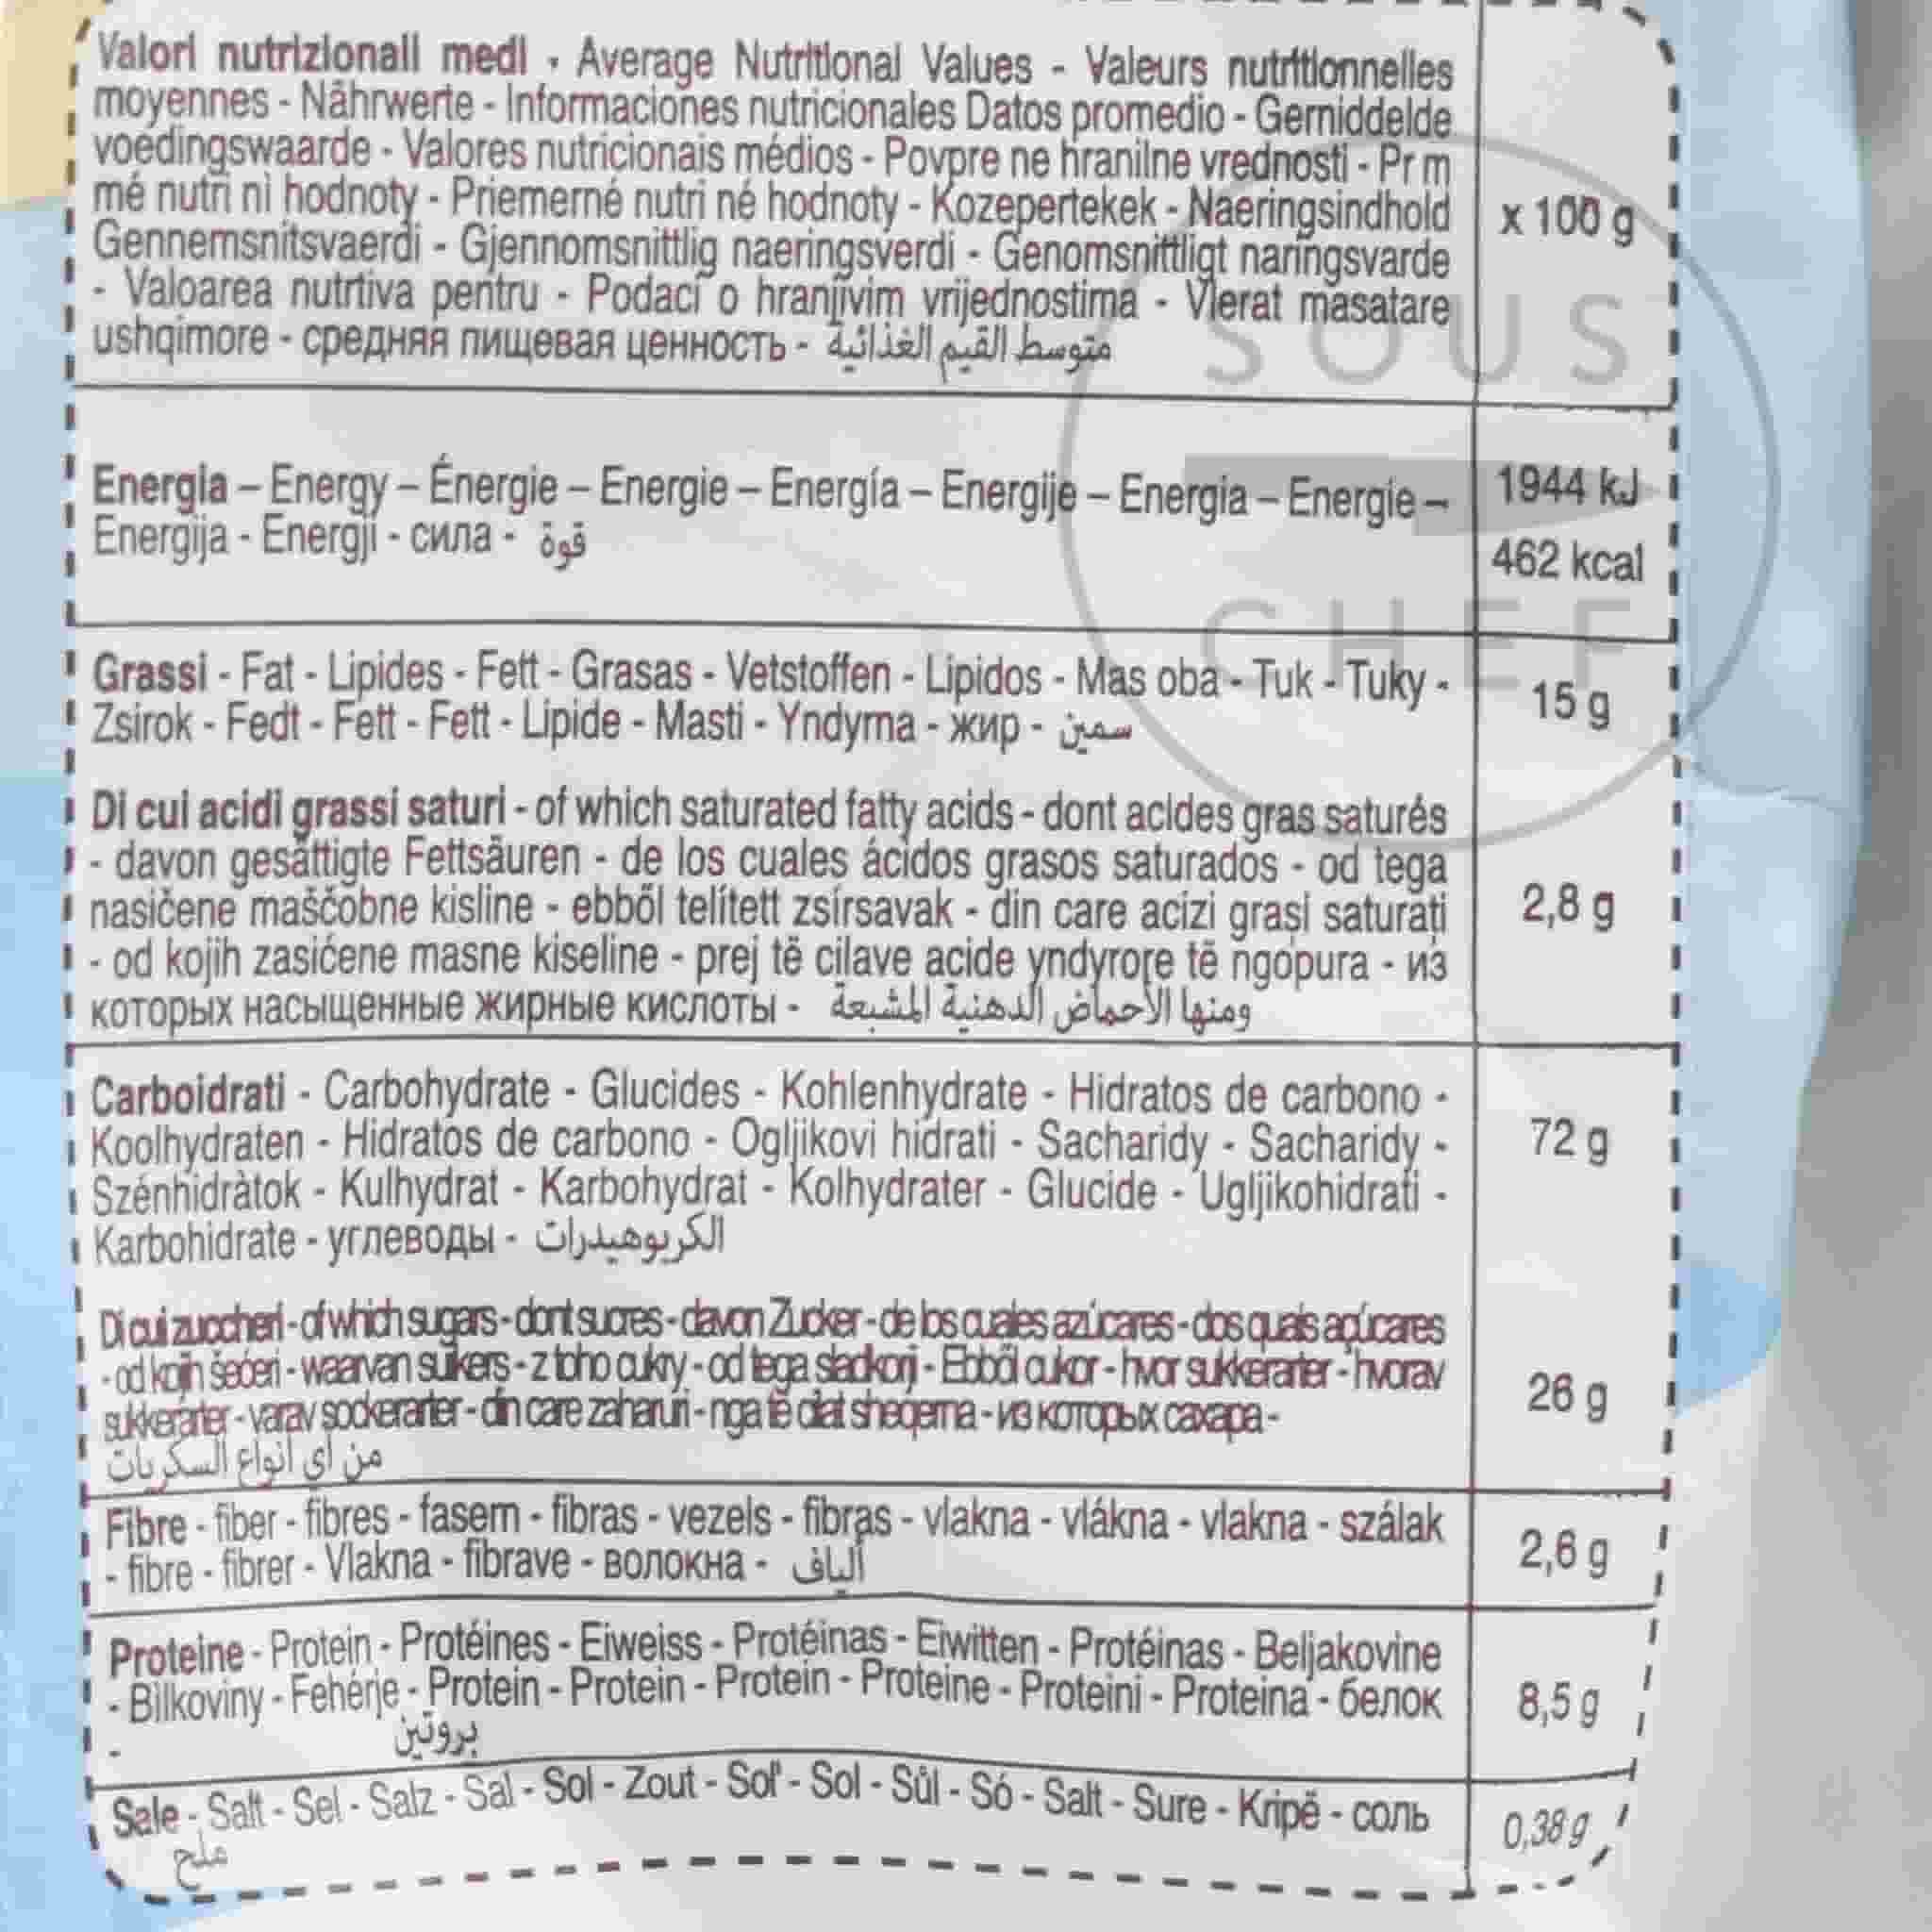 Valori nutrizionali medi - Average Nutritional Values - Valeurs nutritionnelles
moyennes - Nährwerte - Informaciones nutricionales Datos promedio - Gemiddelde
voedingswaarde - Valores nutricionais médios - Povpre ne hranilne vrednosti - Pr m
mé nutri ni hodnoty - Priemerné nutri né hodnoty - Kozepertekek - Naeringsindhold
x 100 g
Gennemsnitsvaerdi - Gjennomsnittlig naeringsverdi - Genomsnittligt naringsvarde
- Valoarea nutrtiva pentru - Podaci o hranjivim vrijednostima - Vlerat mesatare
ushqimore - средняя пищевая ценность - متوسط القيم الغذائية
SOUS
CHEF
Energia – Energy – Énergie – Energie – Energía – Energije – Energia – Energie –
Energija - Energji - сила - قوة
1944 kJ
462 kcal
Grassi - Fat - Lipides - Fett - Grasas - Vetstoffen - Lipidos - Mas oba - Tuk - Tuky -
Zsirok - Fedt - Fett - Fett - Lipide - Masti - Yndyrna - жир - سمين
15 g
Di cui acidi grassi saturi - of which saturated fatty acids - dont acides gras saturés
- davon gesättigte Fettsäuren - de los cuales ácidos grasos saturados - od tega
nasičene maščobne kisline - ebből telített zsírsavak - din care acizi grași saturați
- od kojih zasićene masne kiseline - prej të cilave acide yndyrore të ngopura - из
которых насыщенные жирные кислоты - ومنها الأحماض الدهنية المشبعة
2,8 g
Carboidrati - Carbohydrate - Glucides - Kohlenhydrate - Hidratos de carbono -
Koolhydraten - Hidratos de carbono - Ogljikovi hidrati - Sacharidy - Sacharidy -
Szénhidràtok - Kulhydrat - Karbohydrat - Kolhydrater - Glucide - Ugljikohidrati -
Karbohidrate - углеводы - الكربوهيدرات
72 g
Di cui zuccheri - of which sugars - dont sucres - davon Zucker - de los cuales azúcares - dos quais açúcares
- od kojih šećeri - waarvan suikers - z toho cukry - od tega sladkorji - Ebből cukor - hvor sukkerarter - hvorav
sukkerarter - varav sockerarter - din care zaharuri - nga të cilat sheqerna - из которых сахара -
من أي أنواع السكريات
26 g
Fibre - fiber - fibres - fasern - fibras - vezels - fibras - vlakna - vlákna - vlakna - szálak
- fibre - fibrer - Vlakna - fibrave - волокна - ألياف
2,6 g
Proteine - Protein - Protéines - Eiweiss - Protéinas - Eiwitten - Protéinas - Beljakovine
- Bilkoviny - Fehérje - Protein - Protein - Protein - Proteine - Proteini - Proteina - белок
- بروتين
8,5 g
Sale - Salt - Sel - Salz - Sal - Sol - Zout - Sol' - Sol - Sûl - Só - Salt - Sure - Kripë - соль
ملح
0,38 g